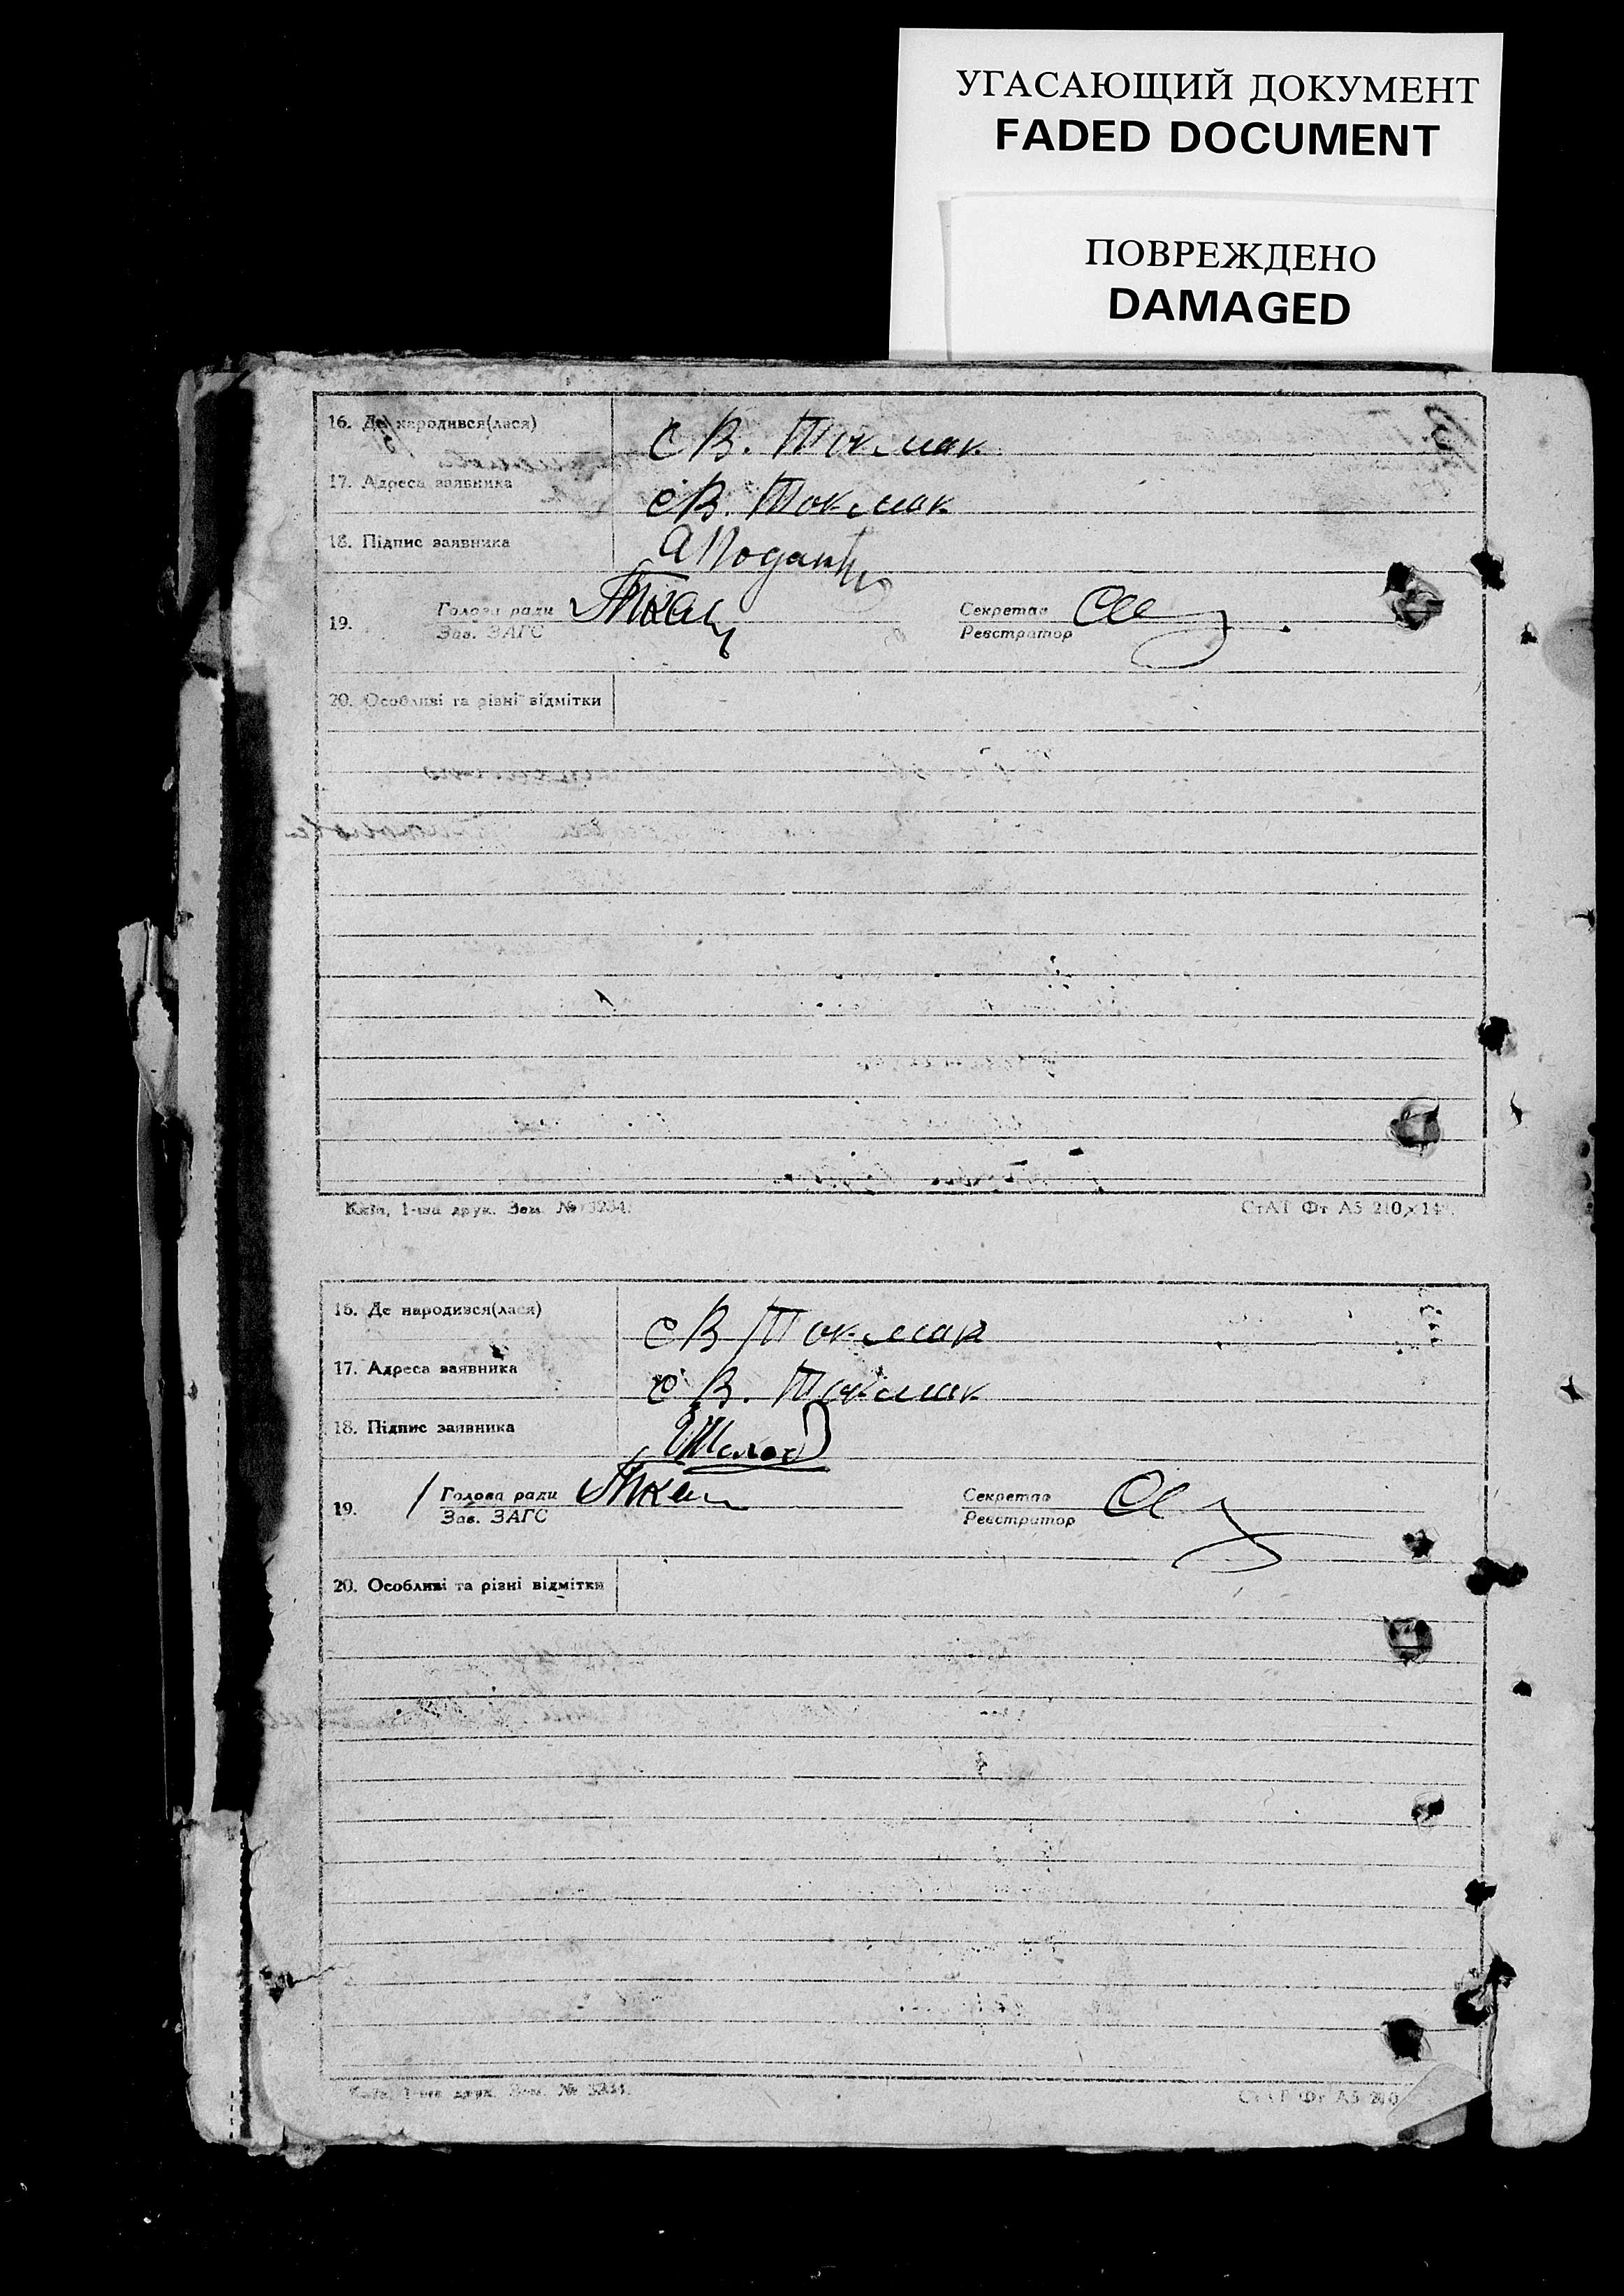 УГАСАЮЩИЙ ДОКУМЕНТ
FADED DOCUMENT
ПОВРЕЖДЕНО
DAMAGED
16. Де народився(лася) с В. Токмак
17. Адреса заявника с В. Токмак
18. Підпис заявника
19. Голова ради Секретар
Зав. ЗАГС Реєстратор
20. Особливі та різні відмітки
Київ, 1-ша друк. Зам. № 3234.
СтАТ Фт А5 210×14
16. Де народився(лася) с В Токмак
17. Адреса заявника с В. Токмак
18. Підпис заявника
19. Голова ради Секретар
Зав. ЗАГС Реєстратор
20. Особливі та різні відмітки
Київ, 1-ша друк. Зам. № 3234.
СтАТ Фт А5 210